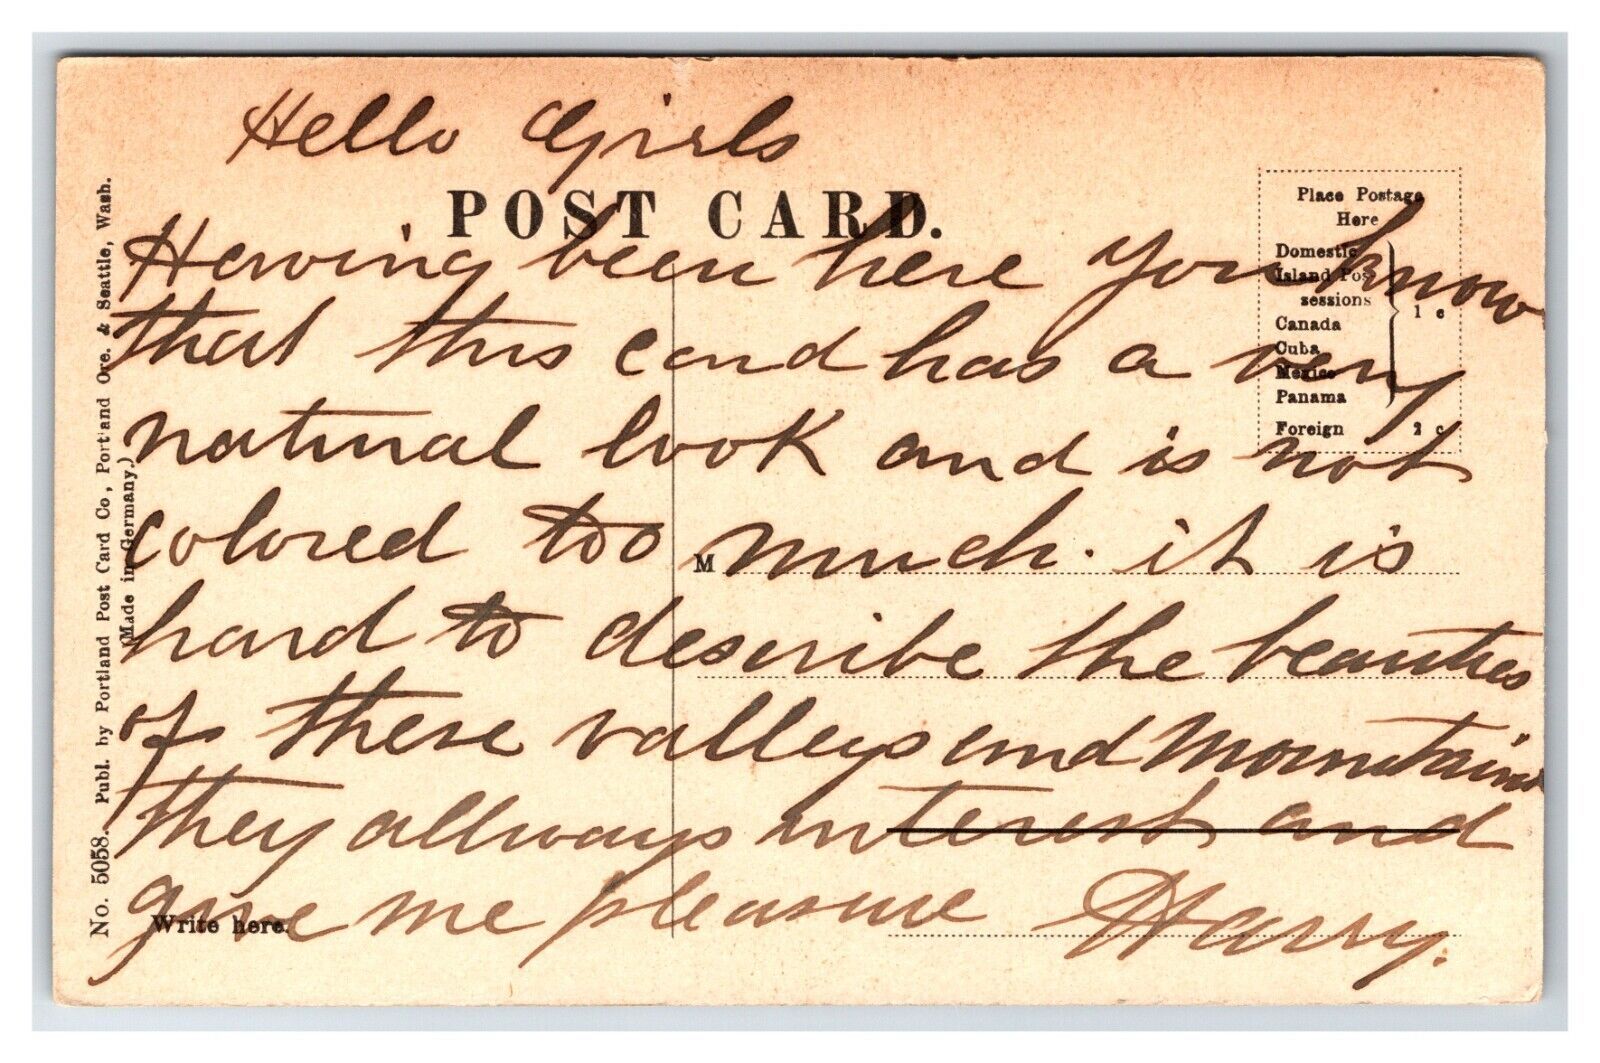 Hello Girls
POST CARD.
Place Postage
Here
Domestic
Island Pos-
sessions
Canada
Cuba
Mexico
Panama
1 c
Foreign 2 c
Having been here you know
that this card has a very
natural look and is not
colored too much. it is
M
hard to describe the beauties
of these valleys and Mountains
they allways interest and
give me pleasure Harry.
Write here.
No. 5058. Publ. by Portland Post Card Co., Portland Ore. & Seattle, Wash.
(Made in Germany.)